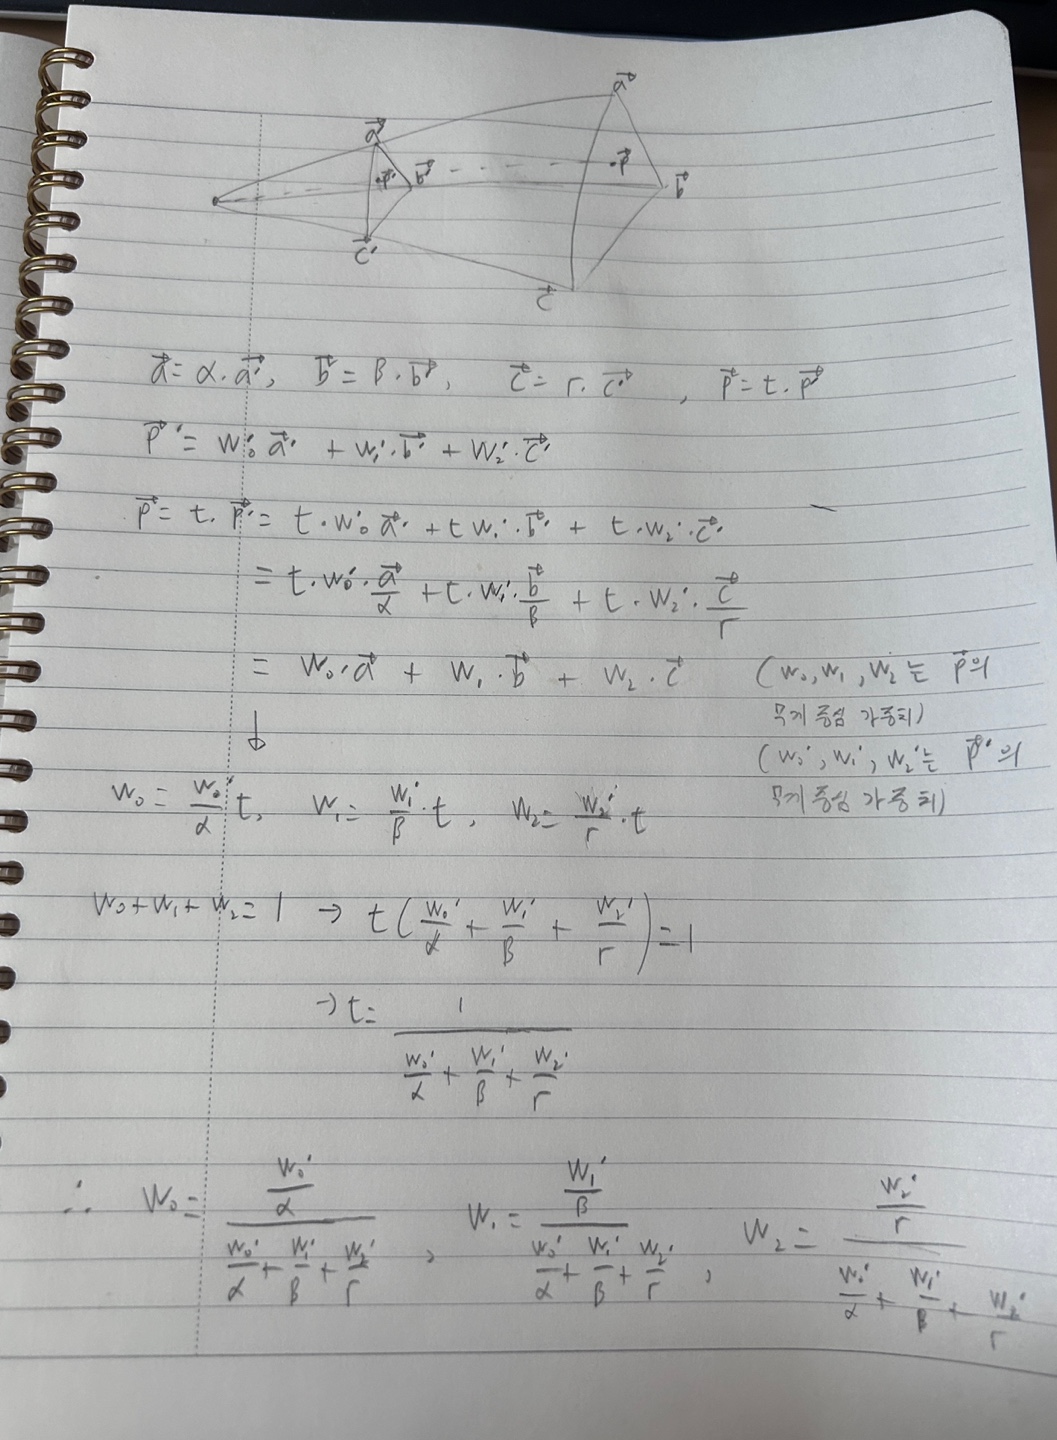 a⃗
a⃗'
p⃗
p⃗' b⃗'
b⃗
c⃗'
c⃗
a⃗ = α·a⃗', b⃗ = β·b⃗', c⃗ = r·c⃗', p⃗ = t·p⃗'
p⃗' = w₀'a⃗' + w₁'·b⃗' + w₂'·c⃗'
p⃗ = t·p⃗' = t·w₀'a⃗' + t w₁'·b⃗' + t·w₂'·c⃗'
= t·w₀'·a⃗/α + t·w₁'·b⃗/β + t·w₂'·c⃗/r
= w₀·a⃗ + w₁·b⃗ + w₂·c⃗ (w₀, w₁, w₂는 p⃗의
무게 중심 가중치)
↓ (w₀', w₁', w₂'는 p⃗'의
무게 중심 가중치)
w₀ = w₀'/α t, w₁ = w₁'/β·t, w₂ = w₂'/r·t
w₀+w₁+w₂ = 1 → t(w₀'/α + w₁'/β + w₂'/r) = 1
→ t = 1/(w₀'/α + w₁'/β + w₂'/r)
∴ w₀ = (w₀'/α)/(w₀'/α + w₁'/β + w₂'/r), w₁ = (w₁'/β)/(w₀'/α + w₁'/β + w₂'/r), w₂ = (w₂'/r)/(w₀'/α + w₁'/β + w₂'/r)